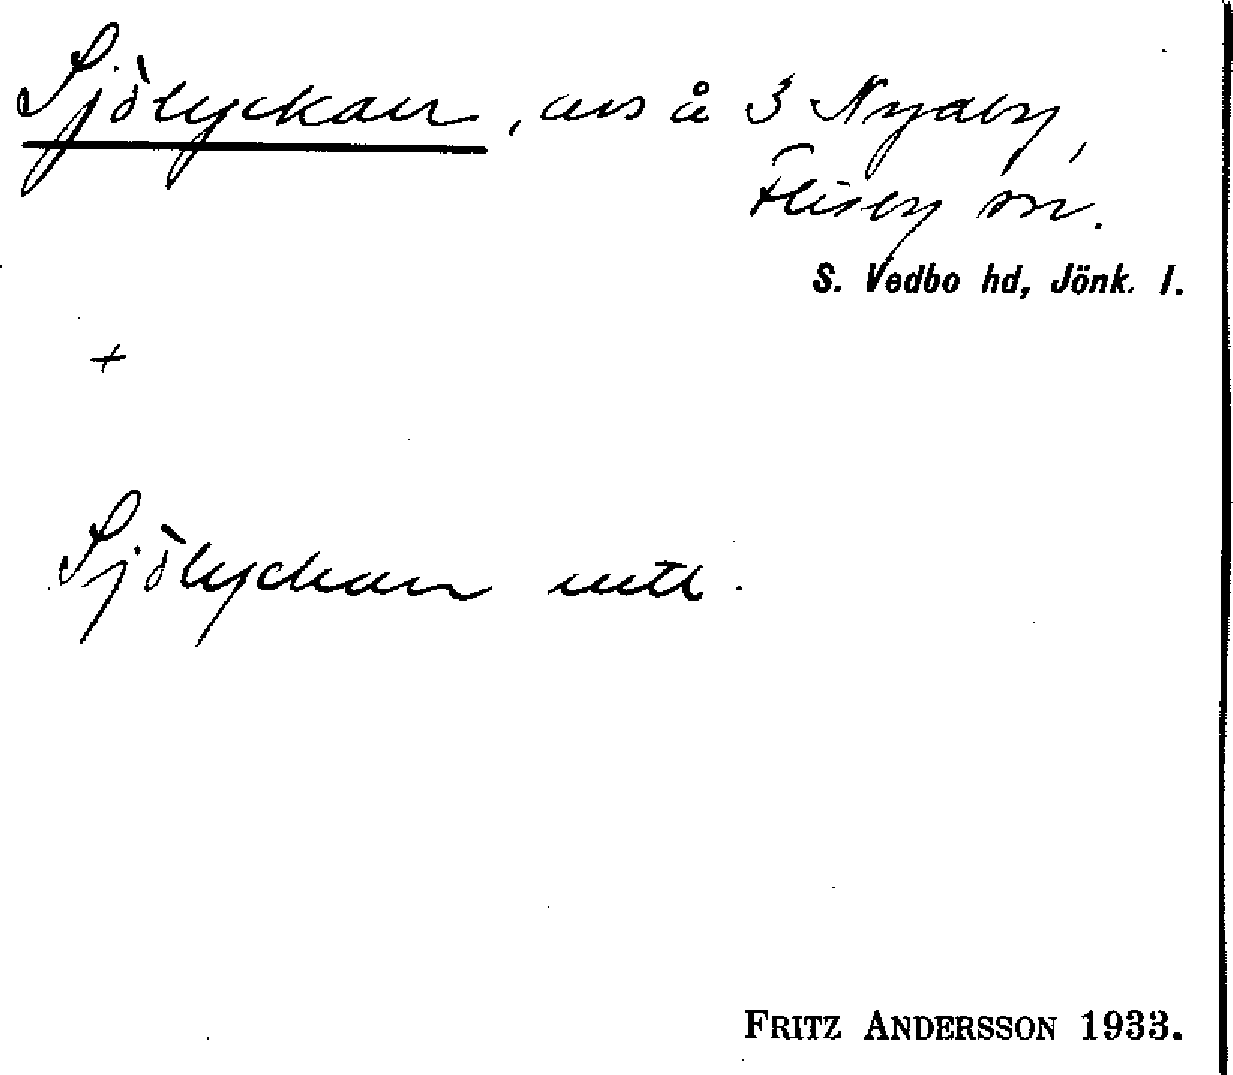 Sjölyckan, avs å 3 Nyaby,
Flisby sn.
S. Vedbo hd, Jönk. l.
+
Sjölyckan uttl.
FRITZ ANDERSSON 1933.